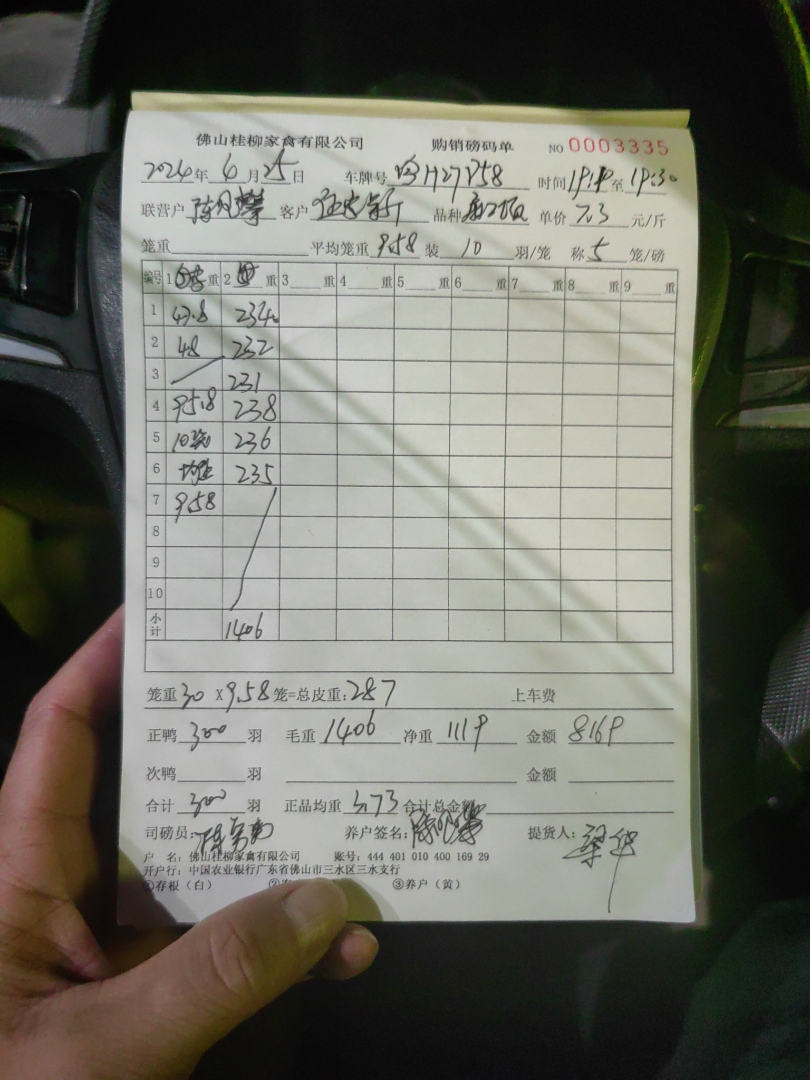 佛山桂柳家禽有限公司 购销磅码单 NO 0003335
2024年 6月25日 车牌号 H27P58 时间19:10至19:30
联营户 陈 客户 品种 单价7.3元/斤
笼重 平均笼重9.58 装10羽/笼 称5笼/磅
编号 1 重 2 重 3 重 4 重 5 重 6 重 7 重 8 重 9 重
1 47.8 234
2 48 232
3 231
4 95.8 238
5 10 236
6 均 235
7 9.58
8
9
10
小计 1406
笼重30 X9.58笼=总皮重:287 上车费
正鸭 300 羽 毛重 1406 净重 1119 金额 8169
次鸭 羽 金额
合计 300 羽 正品均重 3.73 合计总金额
司磅员: 养户签名: 提货人: 梁华
户 名: 佛山桂柳家禽有限公司 账号: 444 401 010 400 169 29
开户行: 中国农业银行广东省佛山市三水区三水支行
①存根(白) ② ③养户(黄)